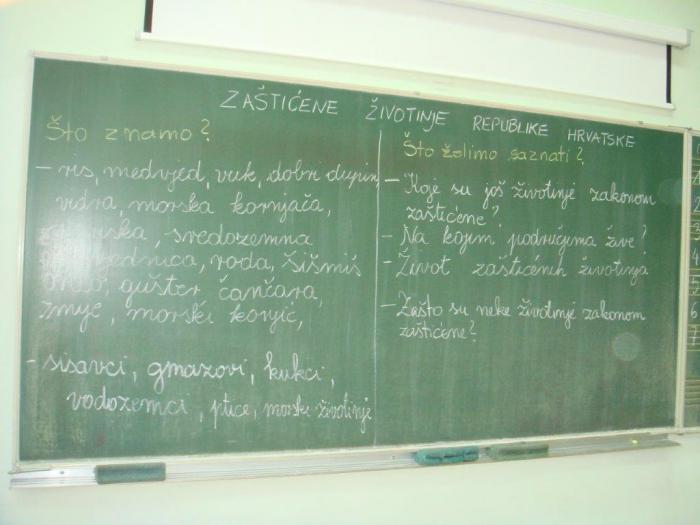 ZAŠTIĆENE ŽIVOTINJE REPUBLIKE HRVATSKE
Što znamo?
- ris, medvjed, vuk, dobri dupin,
vidra, morska kornjača,
sredozemna
medvjednica, roda, šišmiš
gušter čančara,
zmije, morski konjic,
- sisavci, gmazovi, kukci,
vodozemci, ptice, morske životinje
Što želimo saznati?
- Koje su još životinje zakonom
zaštićene?
- Na kojim područjima žive?
- Život zaštićenih životinja
- Zašto su neke životinje zakonom
zaštićene?
4
5
6
7